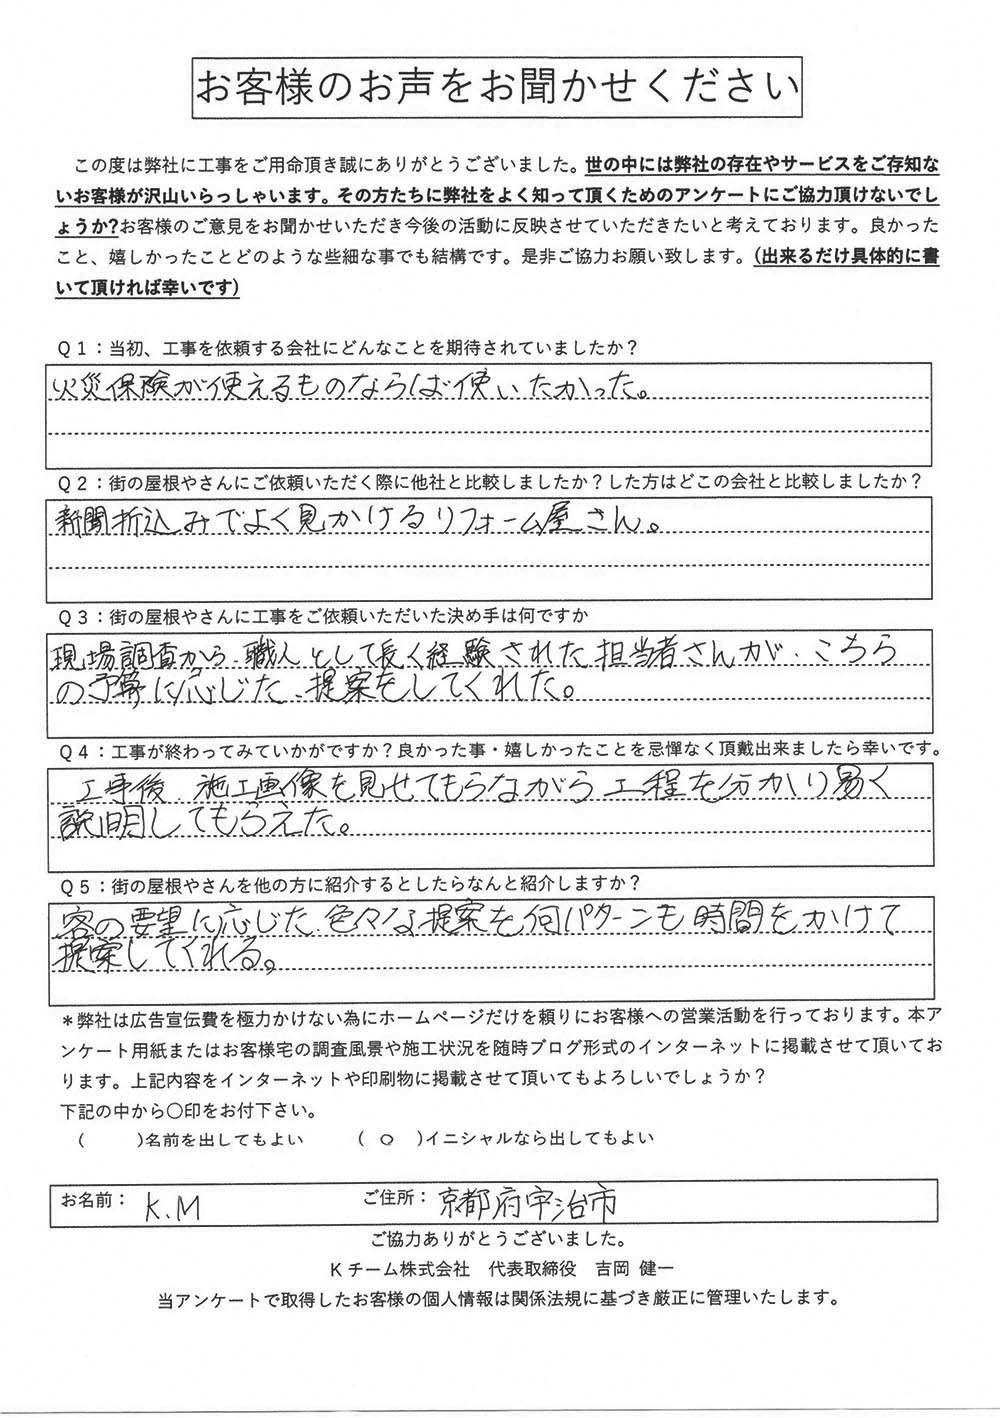 お客様のお声をお聞かせください
この度は弊社に工事をご用命頂き誠にありがとうございました。世の中には弊社の存在やサービスをご存知な
いお客様が沢山いらっしゃいます。その方たちに弊社をよく知って頂くためのアンケートにご協力頂けないでし
ょうか?お客様のご意見をお聞かせいただき今後の活動に反映させていただきたいと考えております。良かった
こと、嬉しかったことどのような些細な事でも結構です。是非ご協力お願い致します。(出来るだけ具体的に書
いて頂ければ幸いです)
Q1：当初、工事を依頼する会社にどんなことを期待されていましたか？
火災保険が使えるものならば使いたかった。
Q2：街の屋根やさんにご依頼いただく際に他社と比較しましたか？した方はどこの会社と比較しましたか？
新聞折込みでよく見かけるリフォーム屋さん。
Q3：街の屋根やさんに工事をご依頼いただいた決め手は何ですか
現場調査から、職人として長く経験された担当者さんが、こちら
の予算に応じた、提案をしてくれた。
Q4：工事が終わってみていかがですか？良かった事・嬉しかったことを忌憚なく頂戴出来ましたら幸いです。
工事後、施工画像を見せてもらながら工程を分かり易く
説明してもらえた。
Q5：街の屋根やさんを他の方に紹介するとしたらなんと紹介しますか？
客の要望に応じた、色々な提案を何パターンも時間をかけて
提案してくれる。
＊弊社は広告宣伝費を極力かけない為にホームページだけを頼りにお客様への営業活動を行っております。本ア
ンケート用紙またはお客様宅の調査風景や施工状況を随時ブログ形式のインターネットに掲載させて頂いてお
ります。上記内容をインターネットや印刷物に掲載させて頂いてもよろしいでしょうか？
下記の中から〇印をお付下さい。
(　　)名前を出してもよい　　( ○ )イニシャルなら出してもよい
お名前： K.M　　ご住所： 京都府宇治市
ご協力ありがとうございました。
Kチーム株式会社　代表取締役　吉岡 健一
当アンケートで取得したお客様の個人情報は関係法規に基づき厳正に管理いたします。